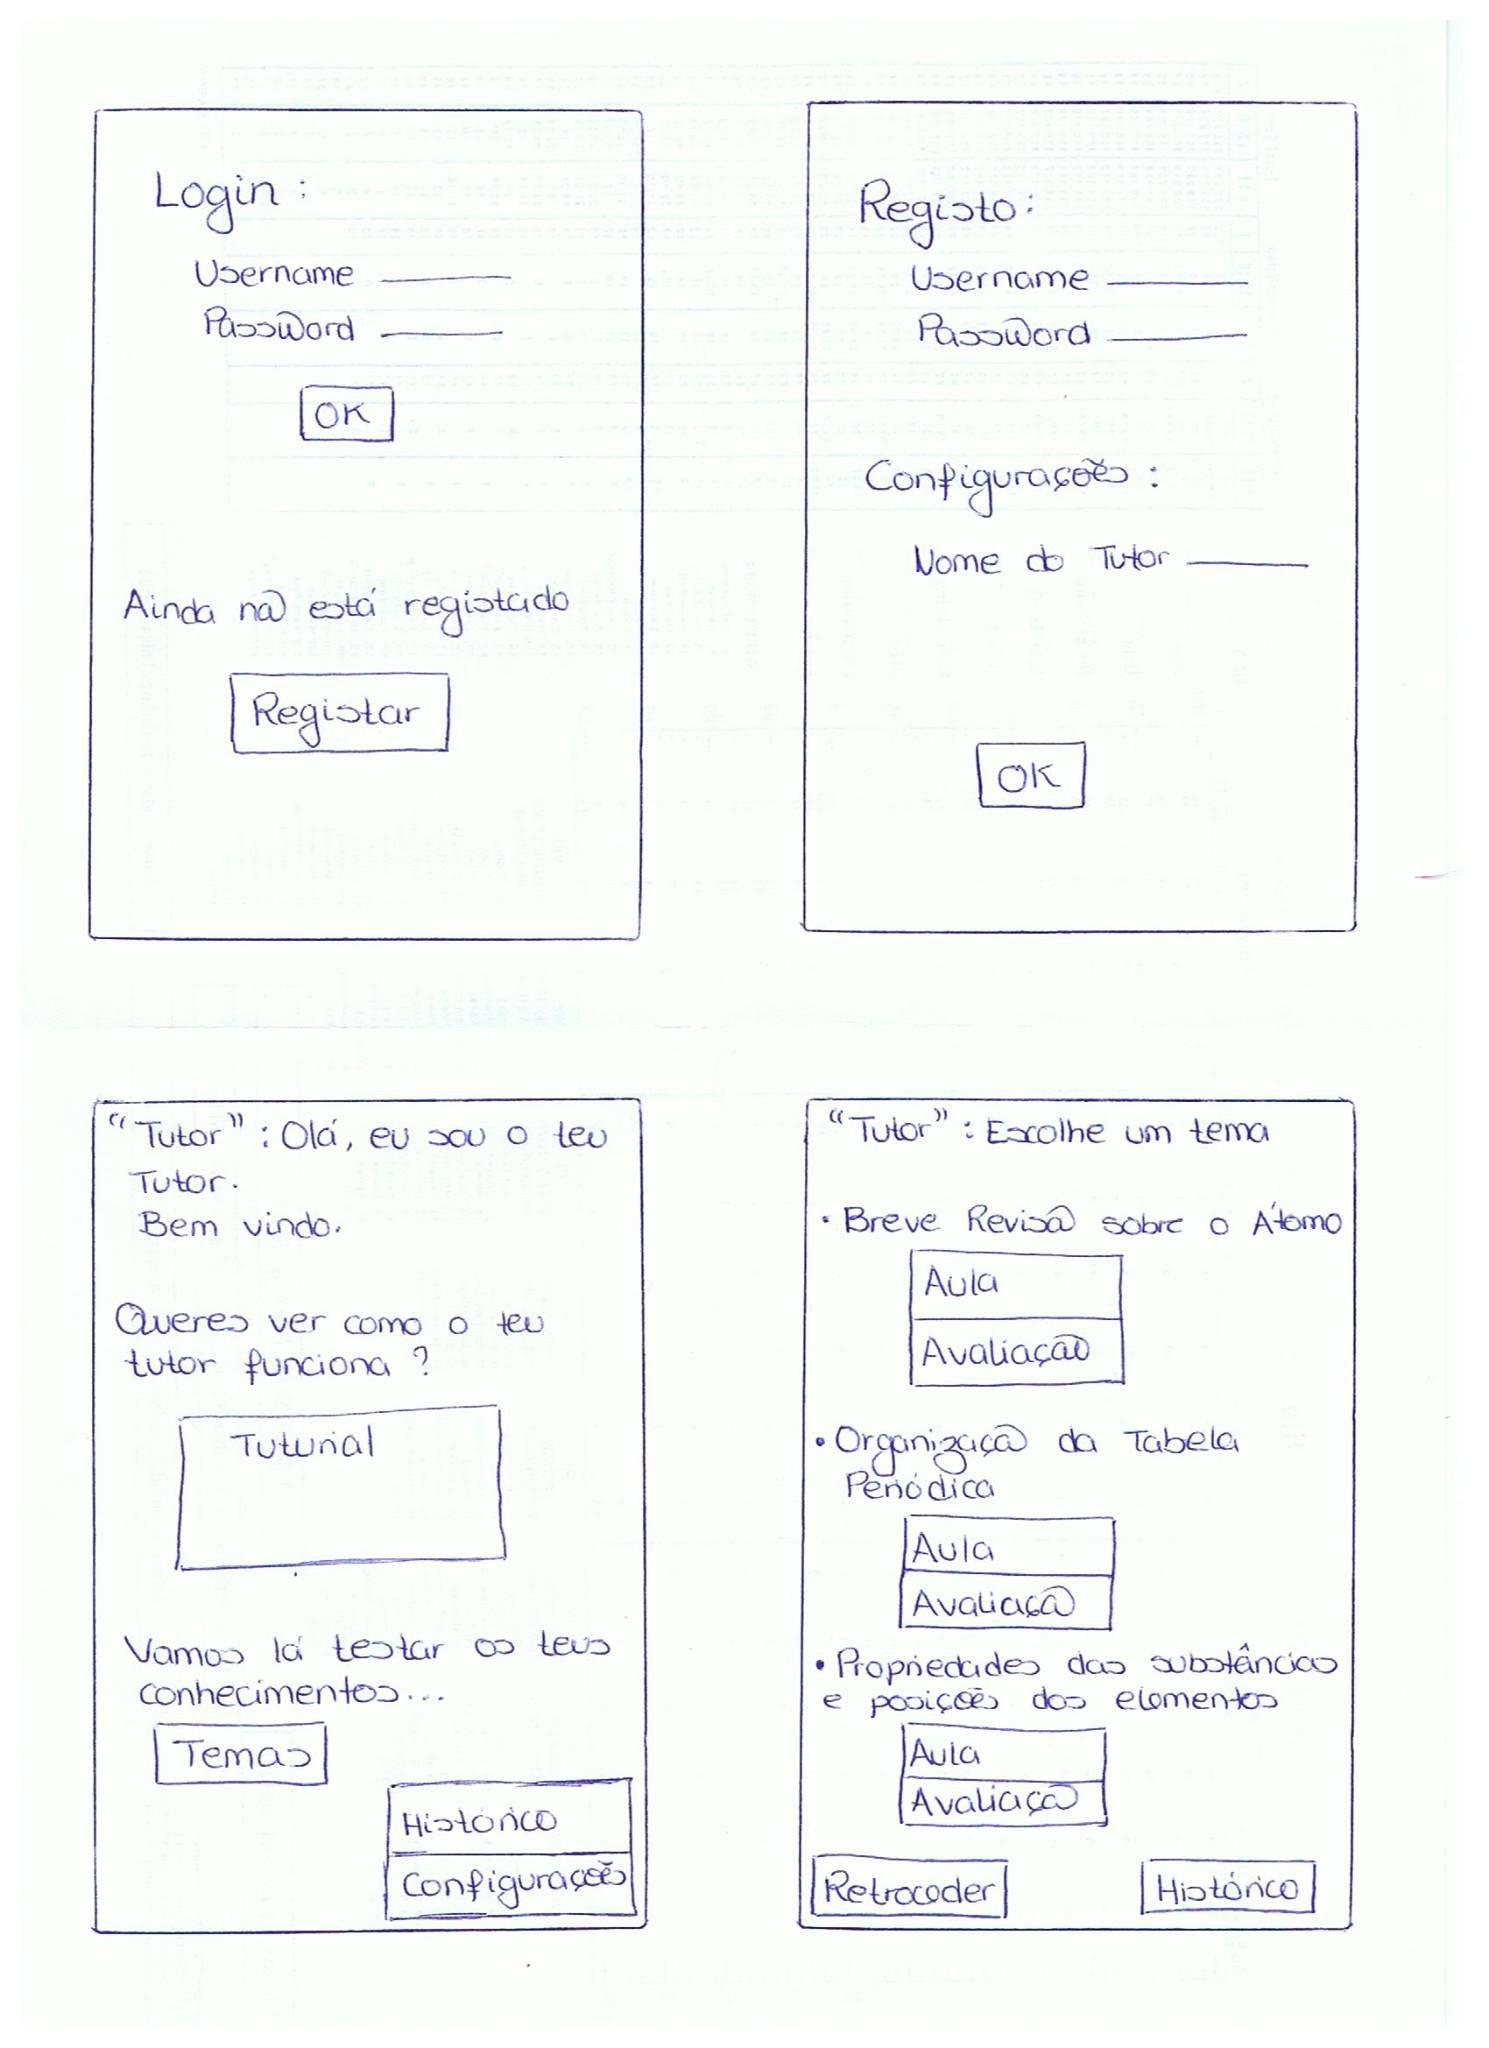 Login :
Username
Password
OK
Ainda não está registado
Registar
Registo:
Username
Password
Configurações :
Nome do Tutor
OK
"Tutor" : Olá, eu sou o teu
Tutor.
Bem vindo.
Queres ver como o teu
tutor funciona ?
Tuturial
Vamos lá testar os teus
conhecimentos...
Temas
Histórico
Configurações
"Tutor" : Escolhe um tema
• Breve Revisão sobre o Átomo
Aula
Avaliação
• Organização da Tabela
Periódica
Aula
Avaliação
• Propriedades das substâncias
e posições dos elementos
Aula
Avaliação
Retroceder
Histórico